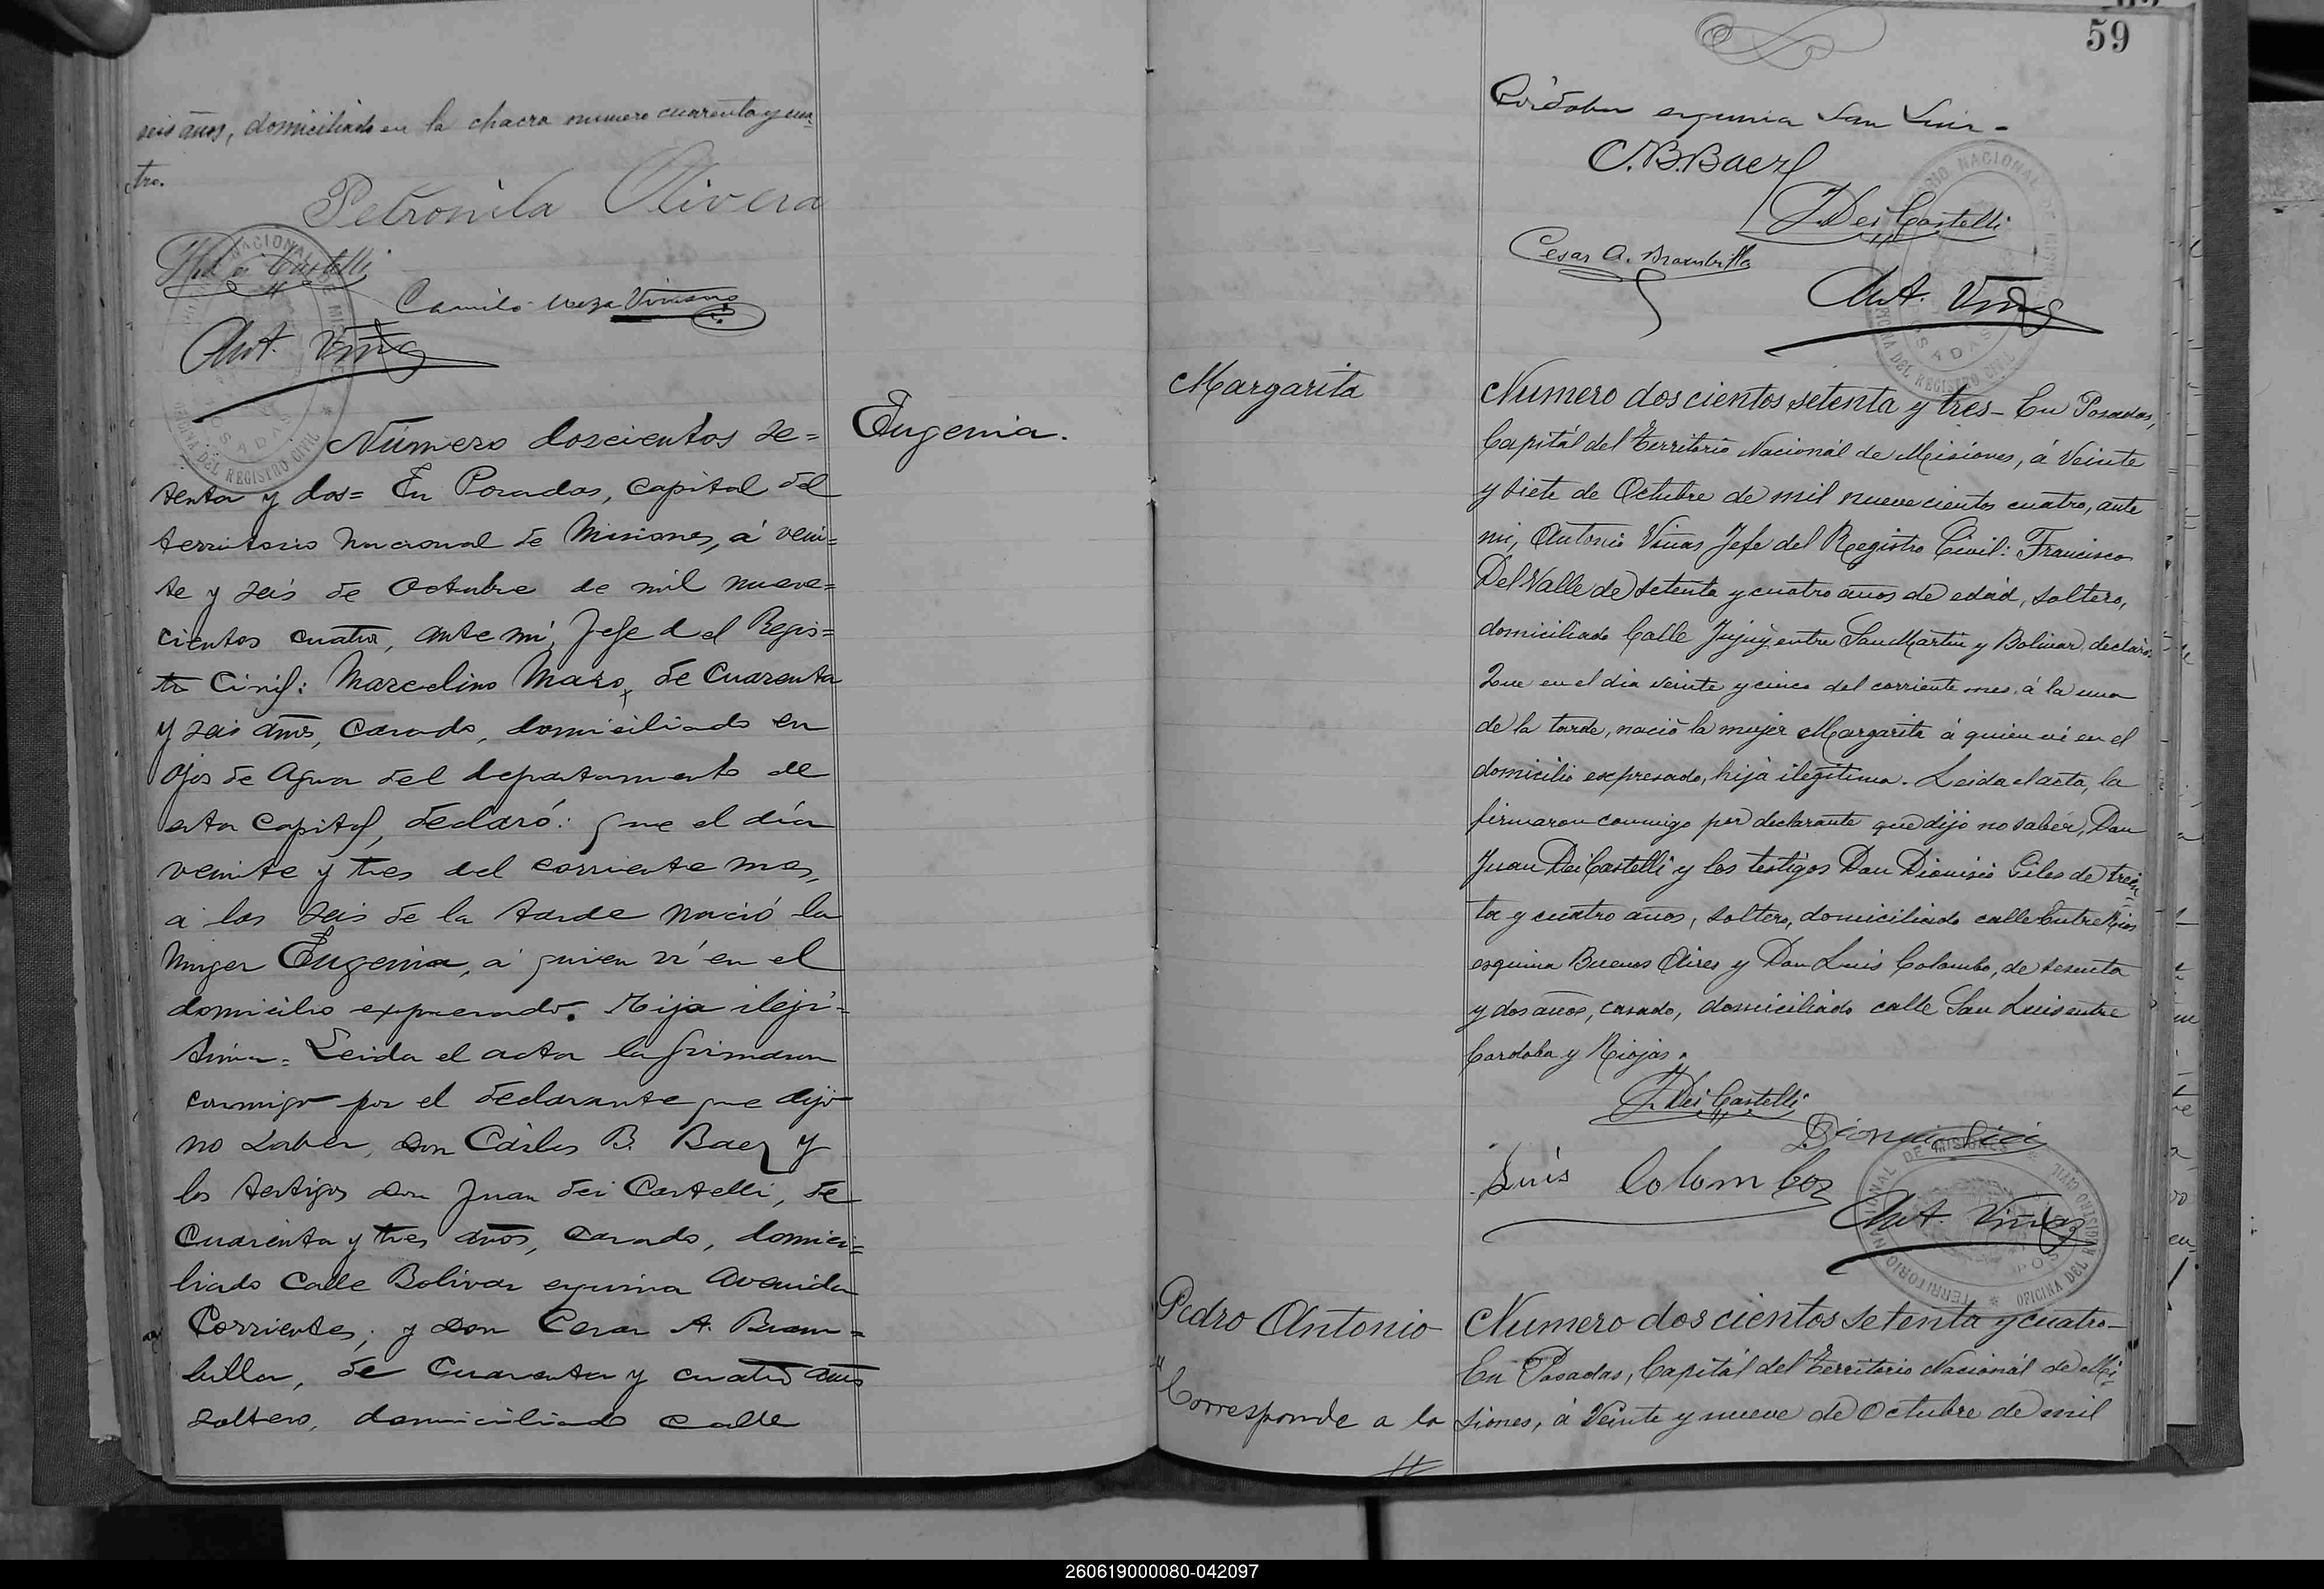 seis años, domiciliado en la chacra numero cuarenta y cua
tro.
Petronila Olivera
Dei Castelli
Camilo Meza
Ant. Viñas
Eugenia.
Número doscientos se=
tenta y dos= En Posadas, capital del
territorio Nacional de Misiones, á vein=
te y seis de Octubre de mil nueve=
cientos cuatro, ante mí, Jefe del Regis=
tro Civil: Marcelino Maso, de Cuarenta
y seis años, Casado, domiciliado en
Ojos de Agua del departamento de
esta Capital, declaró: que el día
veinte y tres del corriente mes,
a las seis de la tarde nació la
Mujer Eugenia, á quien ví en el
domicilio expresado. Hija ileji-
tima= Leida el acta la firmaron
conmigo por el declarante que dijo
no saber, don Cárlos B. Baez y
los testigos don Juan dei Castelli, de
Cuarenta y tres años, casado, domici=
liado Calle Bolivar esquina Avenida
Corrientes; y don Cesar A. Bram=
billa, de Cuarenta y cuatro años
soltero, domiciliado calle
59
Córdoba esquina San Luis-
C.B.Baez
J. Dei Castelli
Cesar A. Brambilla
Ant. Viñas
Margarita
Numero doscientos setenta y tres- En Posadas,
Capitál del Territorio Nacionál de Misiones, á Veinte
y siete de Octubre de mil nuevecientos cuatro, ante
mi, Antonio Viñas Jefe del Registro Civil: Francisco
Del Valle de setenta y cuatro años de edád, soltero,
domiciliado Calle Jujuy entre San Martin y Bolivar, declaró:
Que en el dia veinte y cinco del corriente mes, á la una
de la tarde, nació la mujer Margarita á quien ví en el
domicilio expresado, hija ilegítima. Leida el acta, la
firmaron conmigo por declarante que dijo no sabér, Don
Juan Dei Castelli y los testigos Don Dionisio Giles de trein
ta y cuatro años, soltero, domiciliado calle Entre Rios
esquina Buenos Aires y Don Luis Colombo, de sesenta
y dos años, casado, domiciliado calle San Luis entre
Cordoba y Riojas.
J. Dei Castelli
Luís Colombo
Ant. Viñas
TERRITORIO NACIONAL DE MISIONES * OFICINA DEL REGISTRO CIVIL *
Pedro Antonio
Numero doscientos setenta y cuatro-
En Posadas, Capitál del Territorio Nacionál de Mi-
siones, á Veinte y nueve de Octubre de mil
Corresponde a la
260619000080-042097